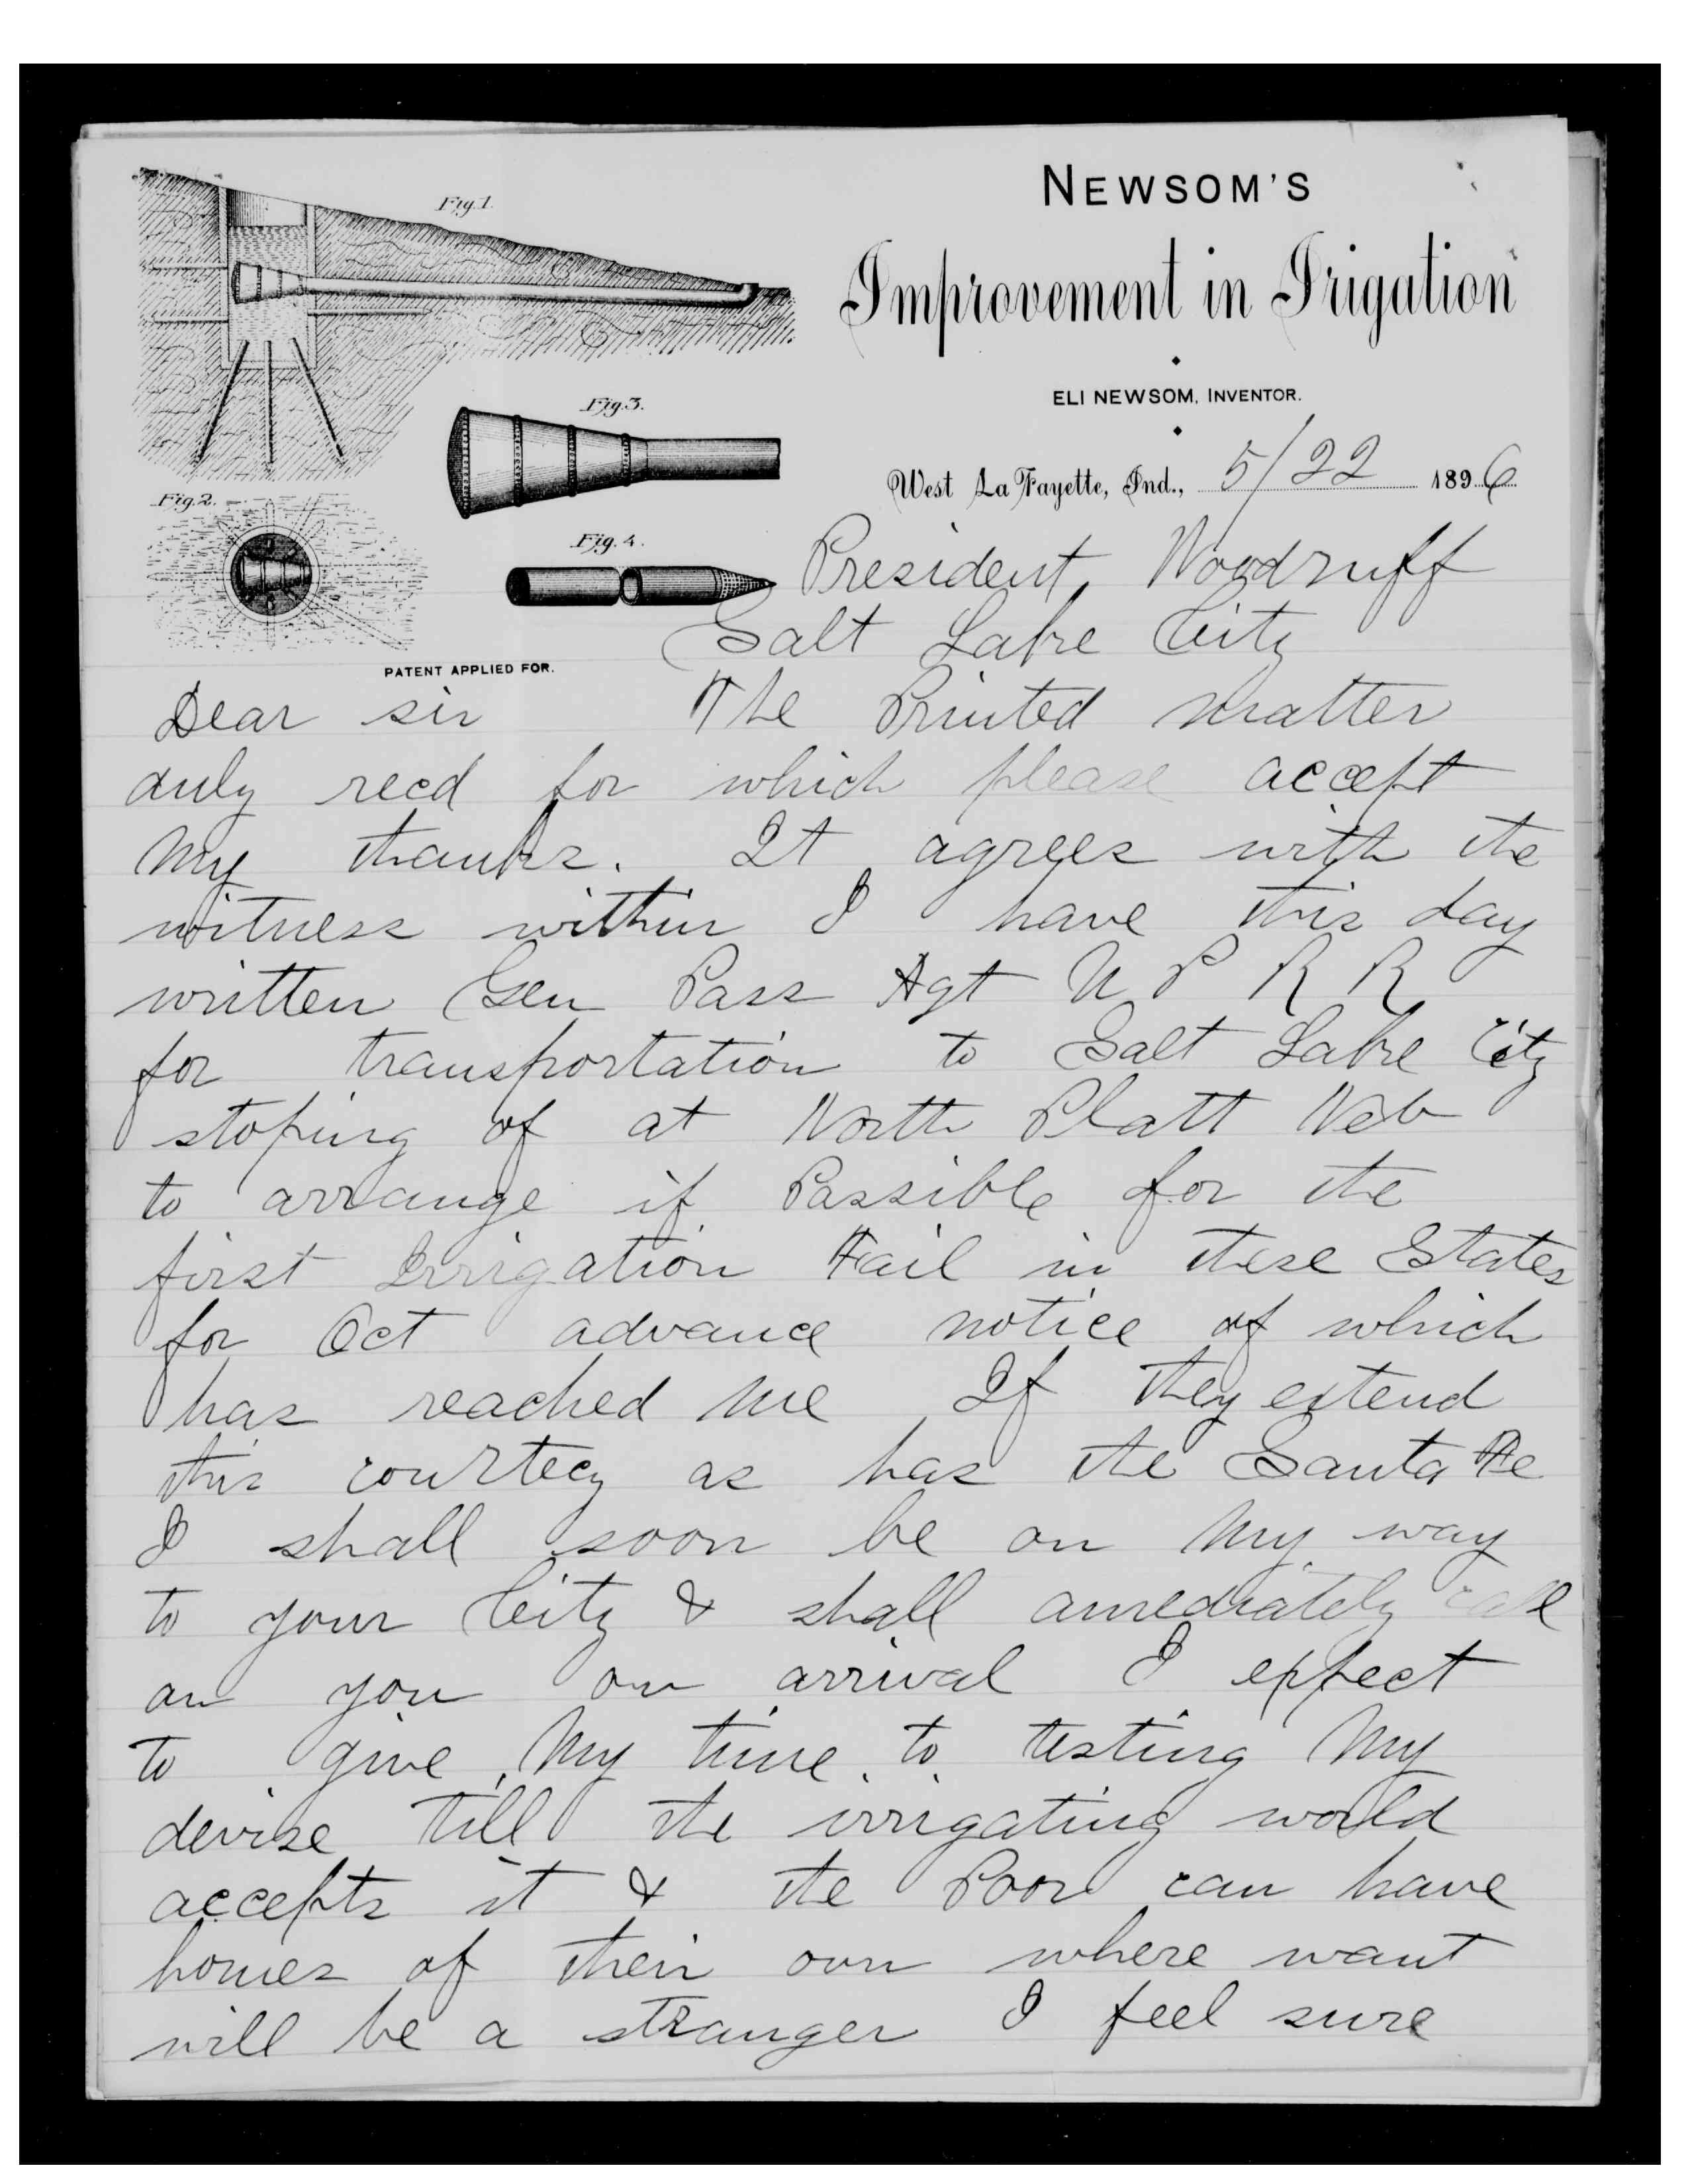 Fig.1.
NEWSOM'S
Improvement in Irigation
ELI NEWSOM, INVENTOR.
Fig.3.
West La Fayette, Ind., 5/22 1896
Fig.2.
Fig.4.
President Woodruff
Salt Lake City
PATENT APPLIED FOR.
Dear sir The Printed matter
duly recd for which please accept
my thanks. It agrees with the
witness within I have this day
written Gen Pass Agt U P R R
for transportation to Salt Lake City
stoping of at North Platt Neb
to arrange if Possible for the
first Irrigation Fail in these States
for Oct advance notice of which
has reached me If they extend
this courtecy as has the Santa Fe
I shall soon be on my way
to your City & shall amediately call
on you on arrival I expect
to give my time to testing my
devise till the irrigating world
accepts it & the Poor can have
homes of their own where want
will be a stranger I feel sure